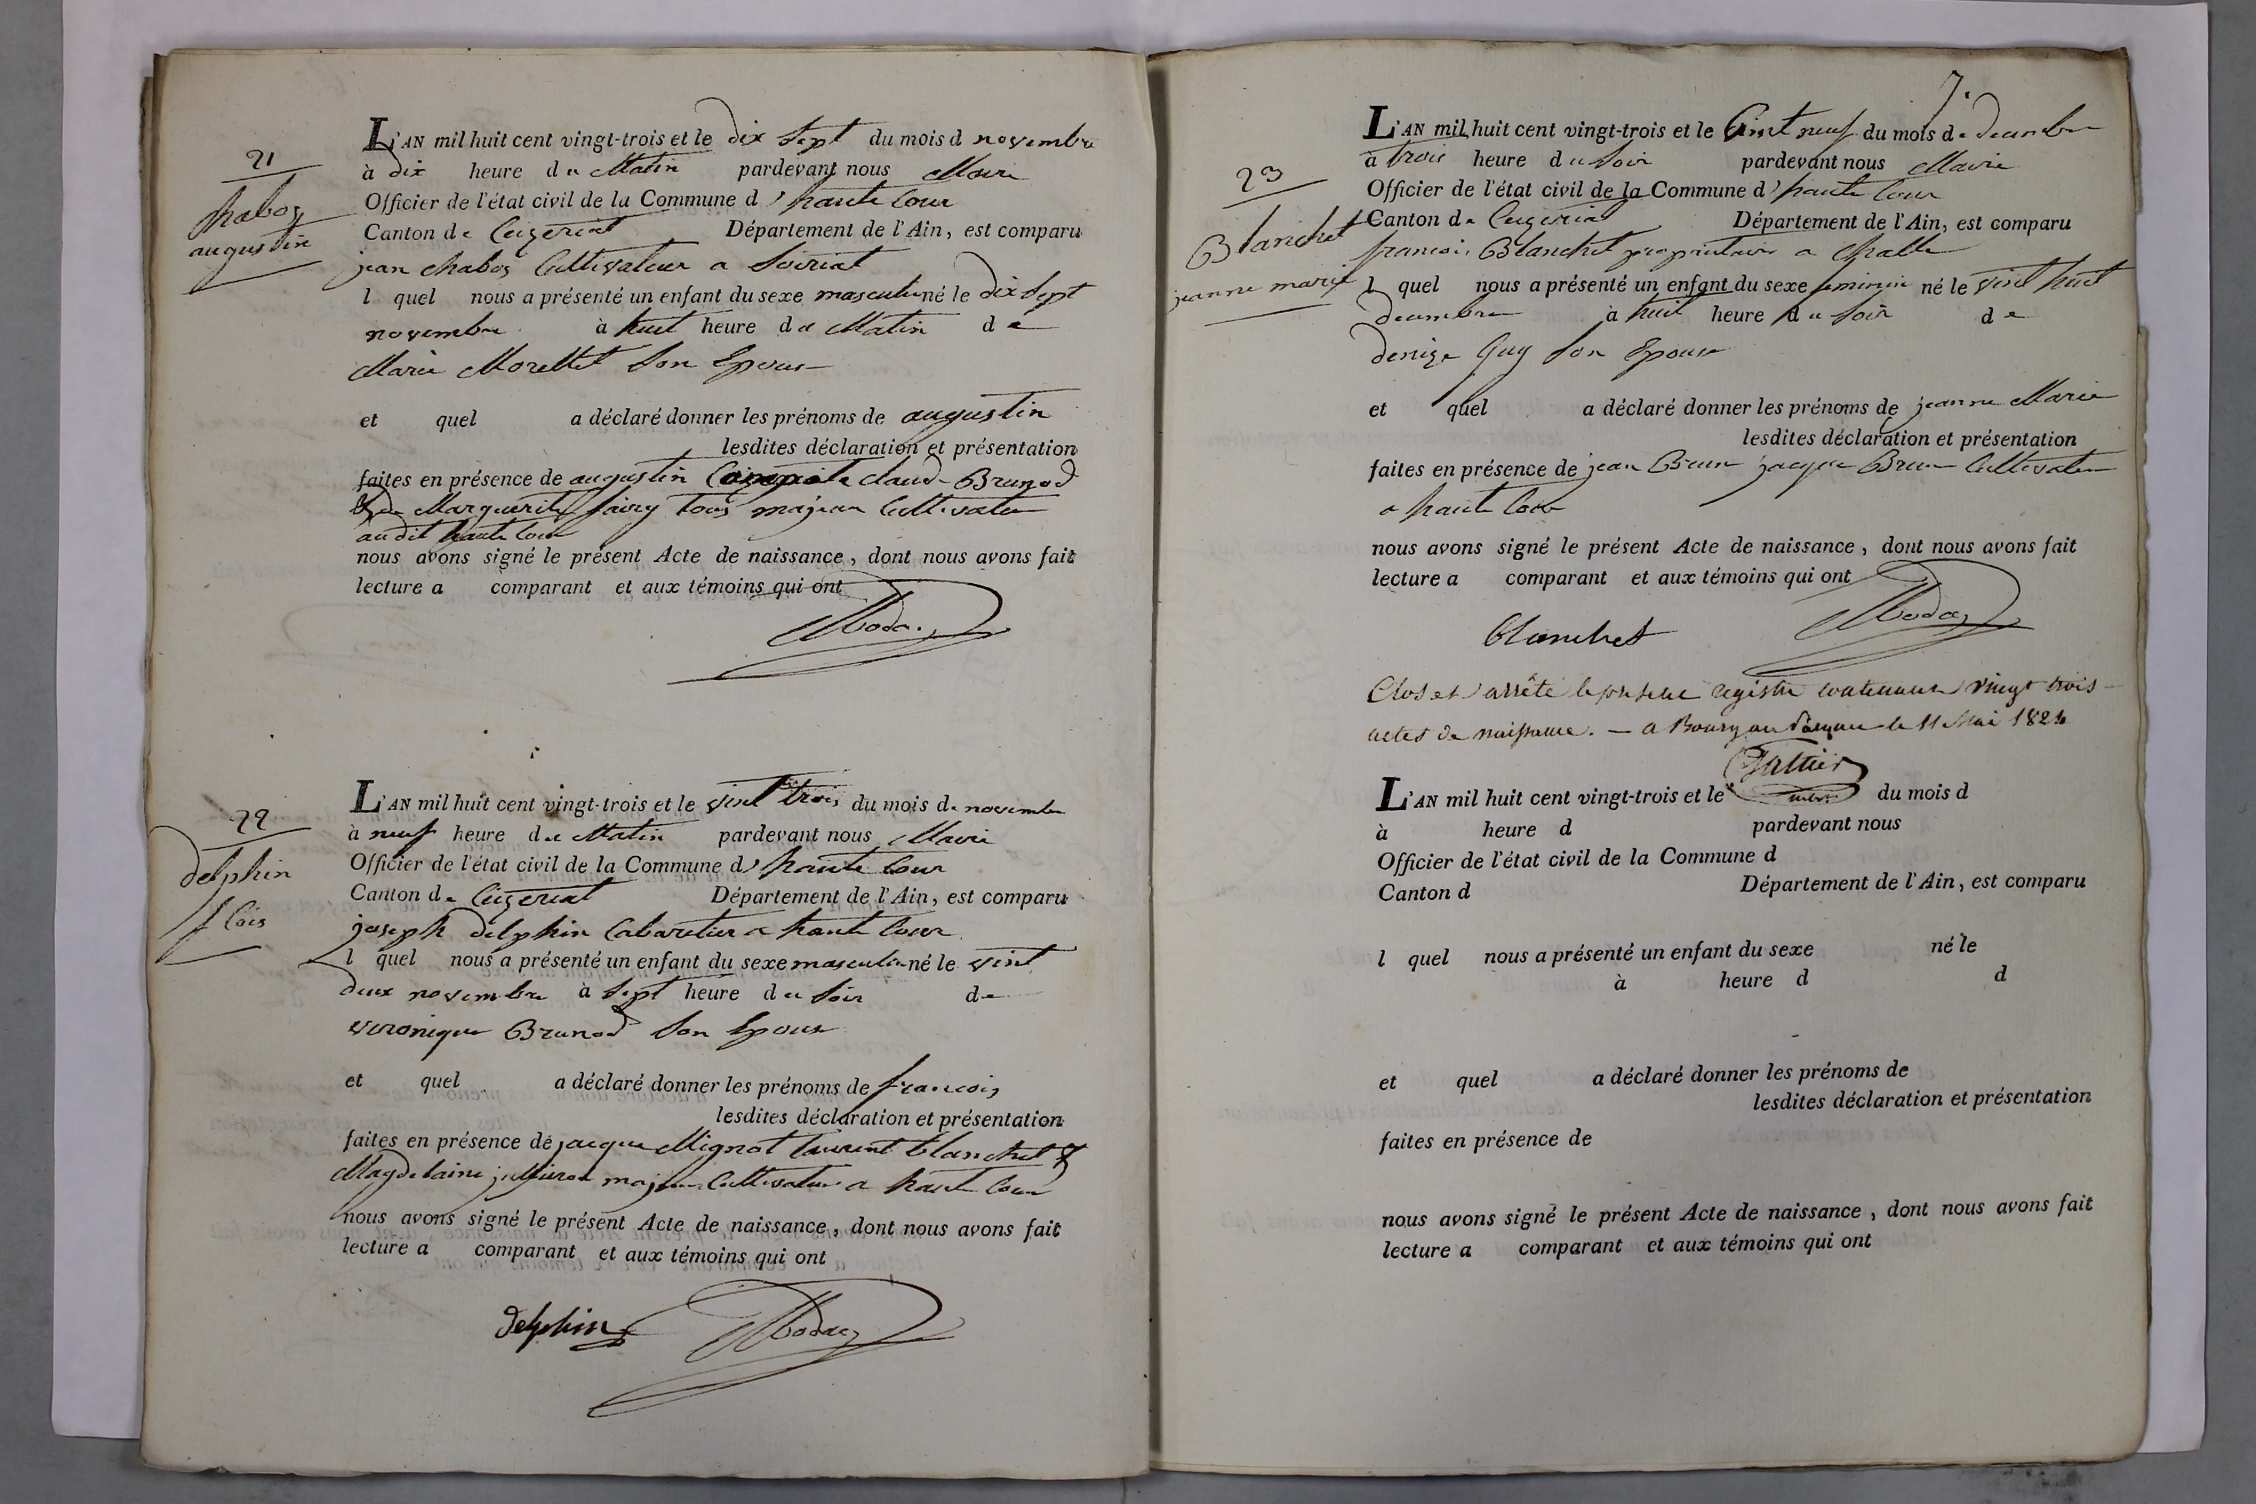 21
chaboz
augustin
L'AN mil huit cent vingt-trois et le dix sept du mois d novembre
à dix heure du Matin pardevant nous Maire
Officier de l'état civil de la Commune d'haute Cour
Canton de Ceizeriat Département de l'Ain, est comparu
jean chaboz Cultivateur a Soiriat
l quel nous a présenté un enfant du sexe masculin né le dix sept
novembre à huit heure du Matin de
Marie Morellet Son Epouse
et quel a déclaré donner les prénoms de augustin
lesdites déclaration et présentation
faites en présence de augustin claud Brunod
Marguerite tous majeur Cultivateur
audit haute Cour
nous avons signé le présent Acte de naissance, dont nous avons fait
lecture a comparant et aux témoins qui ont
22
delphin
f cois
L'AN mil huit cent vingt-trois et le vint trois du mois de novembre
à neuf heure du Matin pardevant nous Maire
Officier de l'état civil de la Commune d'haute Cour
Canton de Ceizeriat Département de l'Ain, est comparu
joseph delphin Cabaretier a haute Cour
l quel nous a présenté un enfant du sexe masculin né le vint
deux novembre à sept heure du Soir de
veronique Brunod Son Epouse
et quel a déclaré donner les prénoms de francois
lesdites déclaration et présentation
faites en présence de jacque Mignot laurent blanchet &
Magdelaine majeur Cultivateur a haute Cour
nous avons signé le présent Acte de naissance, dont nous avons fait
lecture a comparant et aux témoins qui ont
delphin
7.
23
Blanchet
jeanne marie
L'AN mil huit cent vingt-trois et le vint neuf du mois de decembre
à trois heure du Soir pardevant nous Maire
Officier de l'état civil de la Commune d'haute Cour
Canton de Ceizeriat Département de l'Ain, est comparu
francois Blanchet proprietaire a challe
l quel nous a présenté un enfant du sexe feminin né le vint huit
decembre à huit heure du Soir de
denize Guy Son Epouse
et quel a déclaré donner les prénoms de jeanne Marie
lesdites déclaration et présentation
faites en présence de jean Brun jacque Brun Cultivateur
a haute Cour
nous avons signé le présent Acte de naissance, dont nous avons fait
lecture a comparant et aux témoins qui ont
blanchet
Clos et arrêté le présent registre contenant vingt trois
actes de naissance. — a Bourg au le 11 Mai 1824
L'AN mil huit cent vingt-trois et le du mois d
à heure d pardevant nous
Officier de l'état civil de la Commune d
Canton d Département de l'Ain, est comparu
l quel nous a présenté un enfant du sexe né le
à heure d d
et quel a déclaré donner les prénoms de
lesdites déclaration et présentation
faites en présence de
nous avons signé le présent Acte de naissance, dont nous avons fait
lecture a comparant et aux témoins qui ont